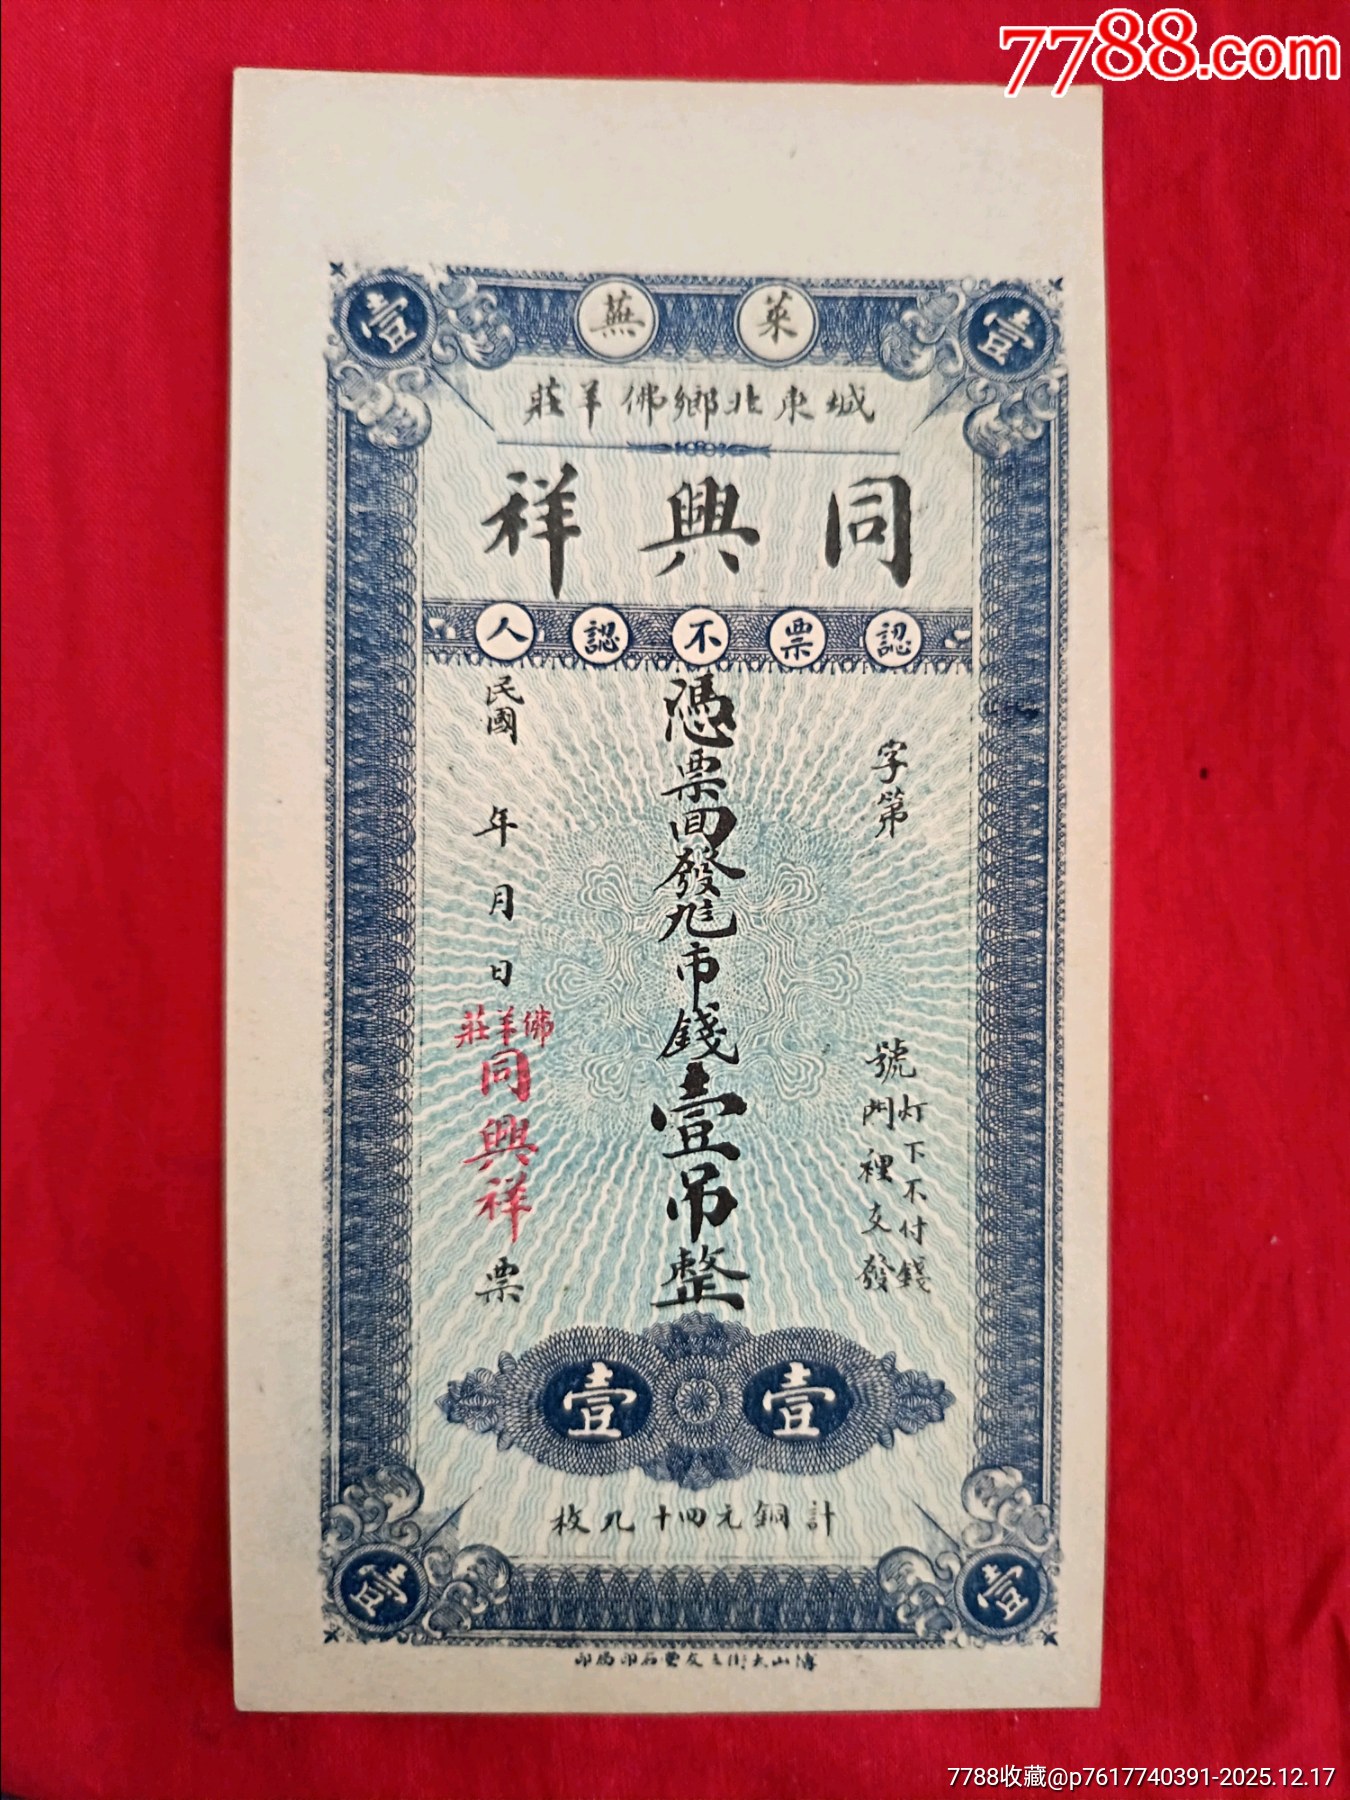 7788.com
壹 萊蕪 壹
城東北鄉佛羊莊
同興祥
認票不認人
字第 號
灯下不付錢
門裡支發
憑票回發九 市錢壹吊整
民國 年 月 日
佛羊莊
同興祥
票
壹 壹
計銅元四十九枚
壹 壹
博山大街 友 石印局印
7788收藏@p7617740391-2025.12.17